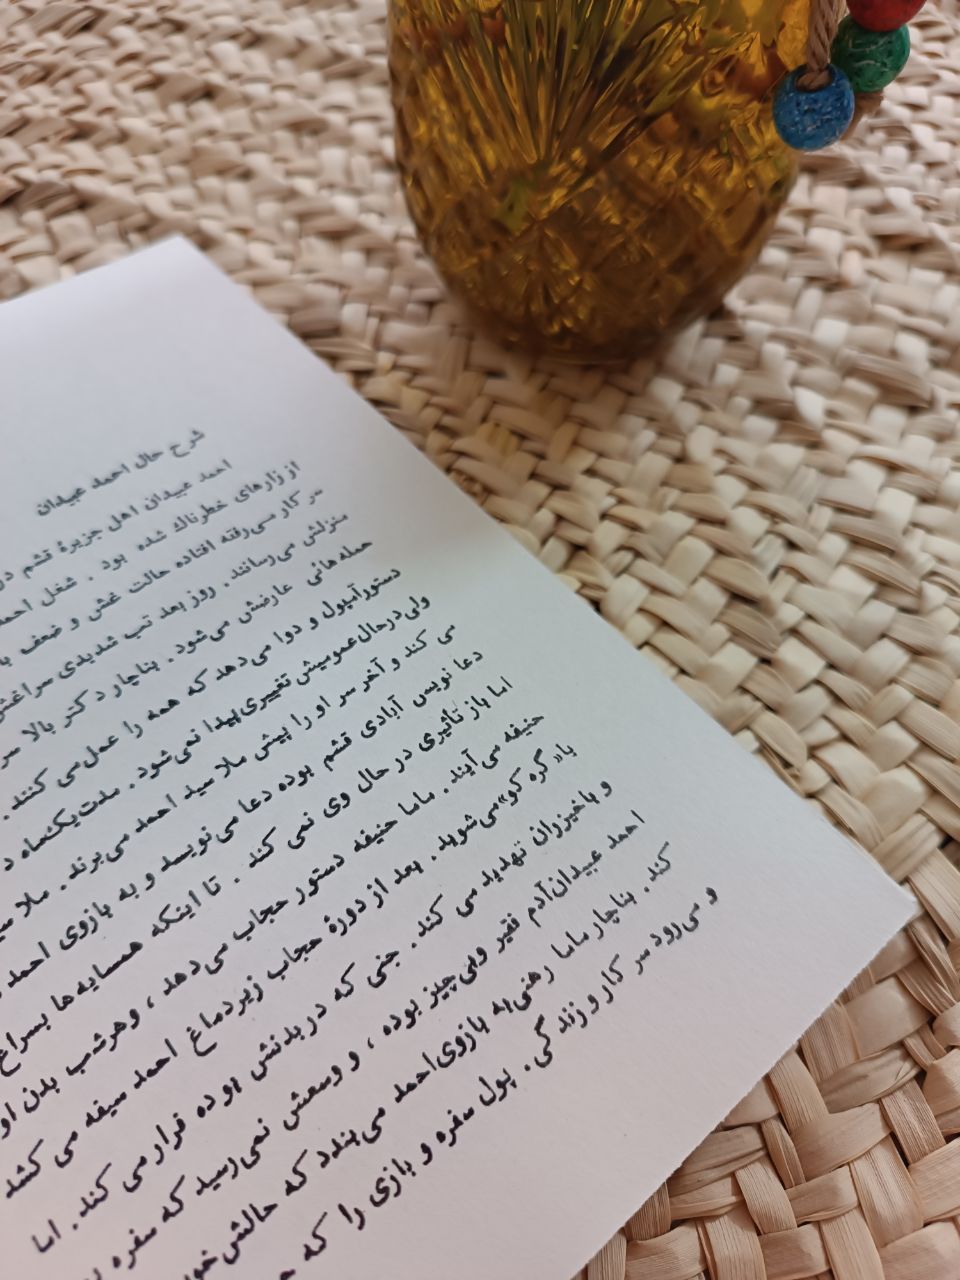 شرح حال احمد عبیدان
احمد عبیدان اهل جزیرهٔ قشم در
از زارهای خطرناك شده بود . شغل احمد
سر کار می‌رفته افتاده حالت غش و ضعف
منزلش می‌رسانند. روز بعد تب شدیدی سراغش
حمله‌هائی عارضش می‌شود . بناچار دکتر بالا سر
دستور آمپول و دوا می‌دهد که همه را عمل می کنند .
ولی در حال عمومیش تغییری پیدا نمی‌شود . مدت یك‌ماه
می کند و آخر سر او را پیش ملا سید احمد می‌برند . ملا
دعا نویس آبادی قشم بوده دعا می‌نویسد و به بازوی احمد
اما باز تأثیری در حال وی نمی کند . تا اینکه همسایه‌ها بسراغ
حنیفه می‌آیند . ماما حنیفه دستور حجاب می‌دهد ، و هر شب بدن او
با «گره کو» می‌شوید . بعد از دورهٔ حجاب زیر دماغ احمد سیفه می کشد
و با خیزران تهدید می کند . جنی که در بدنش بوده فرار می کند . اما
احمد عبیدان آدم فقیر و بی‌چیز بوده ، و وسعش نمی‌رسید که سفره
کند . بناچار ماما رهنی به بازوی احمد می‌بندد که حالش
و می‌رود سر کار و زندگی . پول سفره و بازی را که